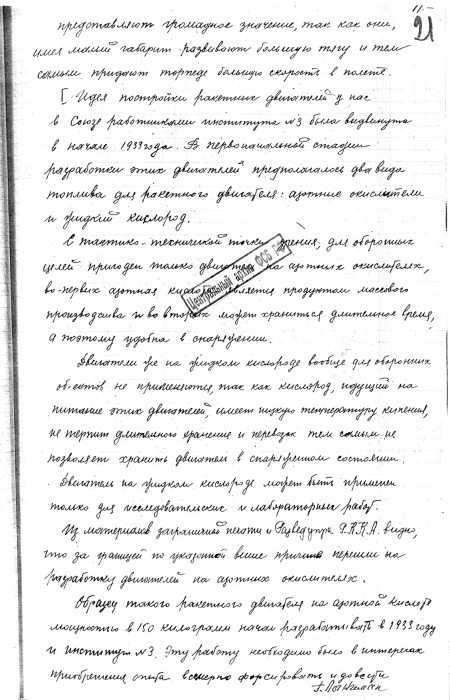 11.-
21
представляют громадное значение, так как они,
имея малый габарит развивают большую тягу и тем
самым придают торпеде большую скорость в полете.
[ Идея постройки ракетных двигателей у нас
в Союзе работниками института №3 была выдвинута
в начале 1933 года. В первоначальной стадии
разработки этих двигателей предполагалось два вида
топлива для ракетного двигателя: азотные окислители
и жидкий кислород.
С тактико-технической точки зрения, для оборонных
целей пригоден только двигатель на азотных окислителях,
во-первых азотная кислота является продуктом массового
производсва и во вторых может храниться длительное время,
а поэтому удобна в снаряжении.
Центральный архив ФСБ РФ
Двигатели же на жидком кислороде вообще для оборонных
об-ектов не применяются, так как кислород, идущий на
питание этих двигателей, имеет низкую температуру кипения,
не терпит длительного хранения и перевозок тем самым не
позволяет хранить двигатели в снаряженном состоянии.
Двигатели на жидком кислороде может быть применен
только для исследовательских и лабораторных работ.
Из материалов заграничной печати и Разведупра Р.К.К.А. видно,
что за границей по указанной выше причине перешли на
разработку двигателей на азотных окислителях.
Образец такого ракетного двигателя на азотной кислоте
мощностью в 150 килограмм начал разрабатывать в 1933 году
и институт №3. Эту работу необходимо было в интересах
приобретения опыта всемерно форсировать и довести